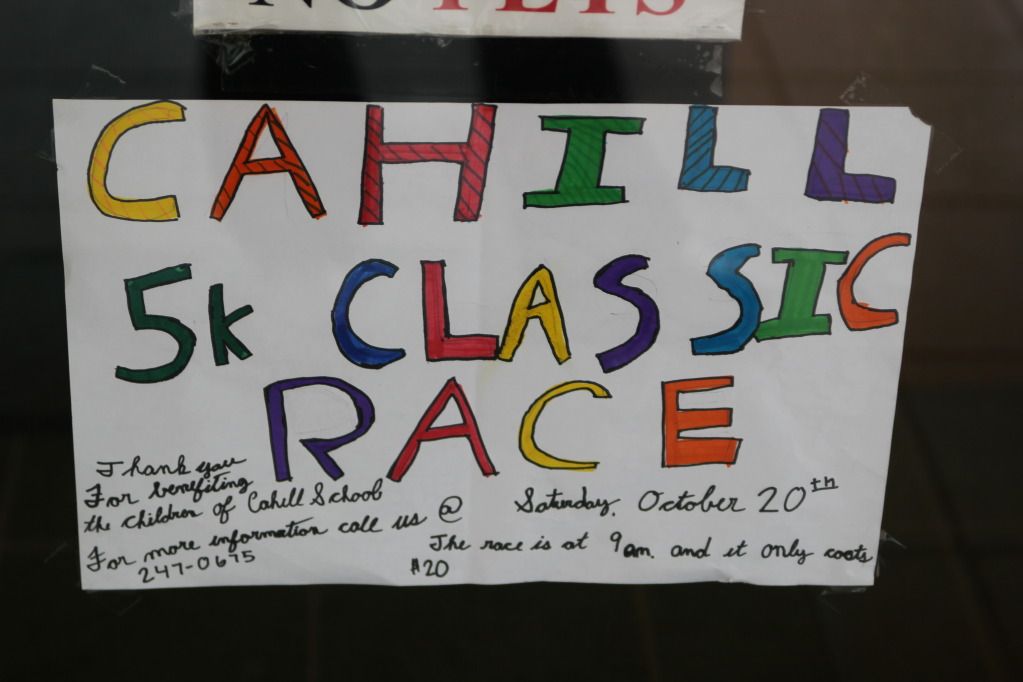 NO PETS
CAHILL
5K CLASSIC
RACE
Thank you
For benefiting
the children of Cahill School
For more information call us @
247-0675
Saturday, October 20th
The race is at 9am. and it only costs
$20